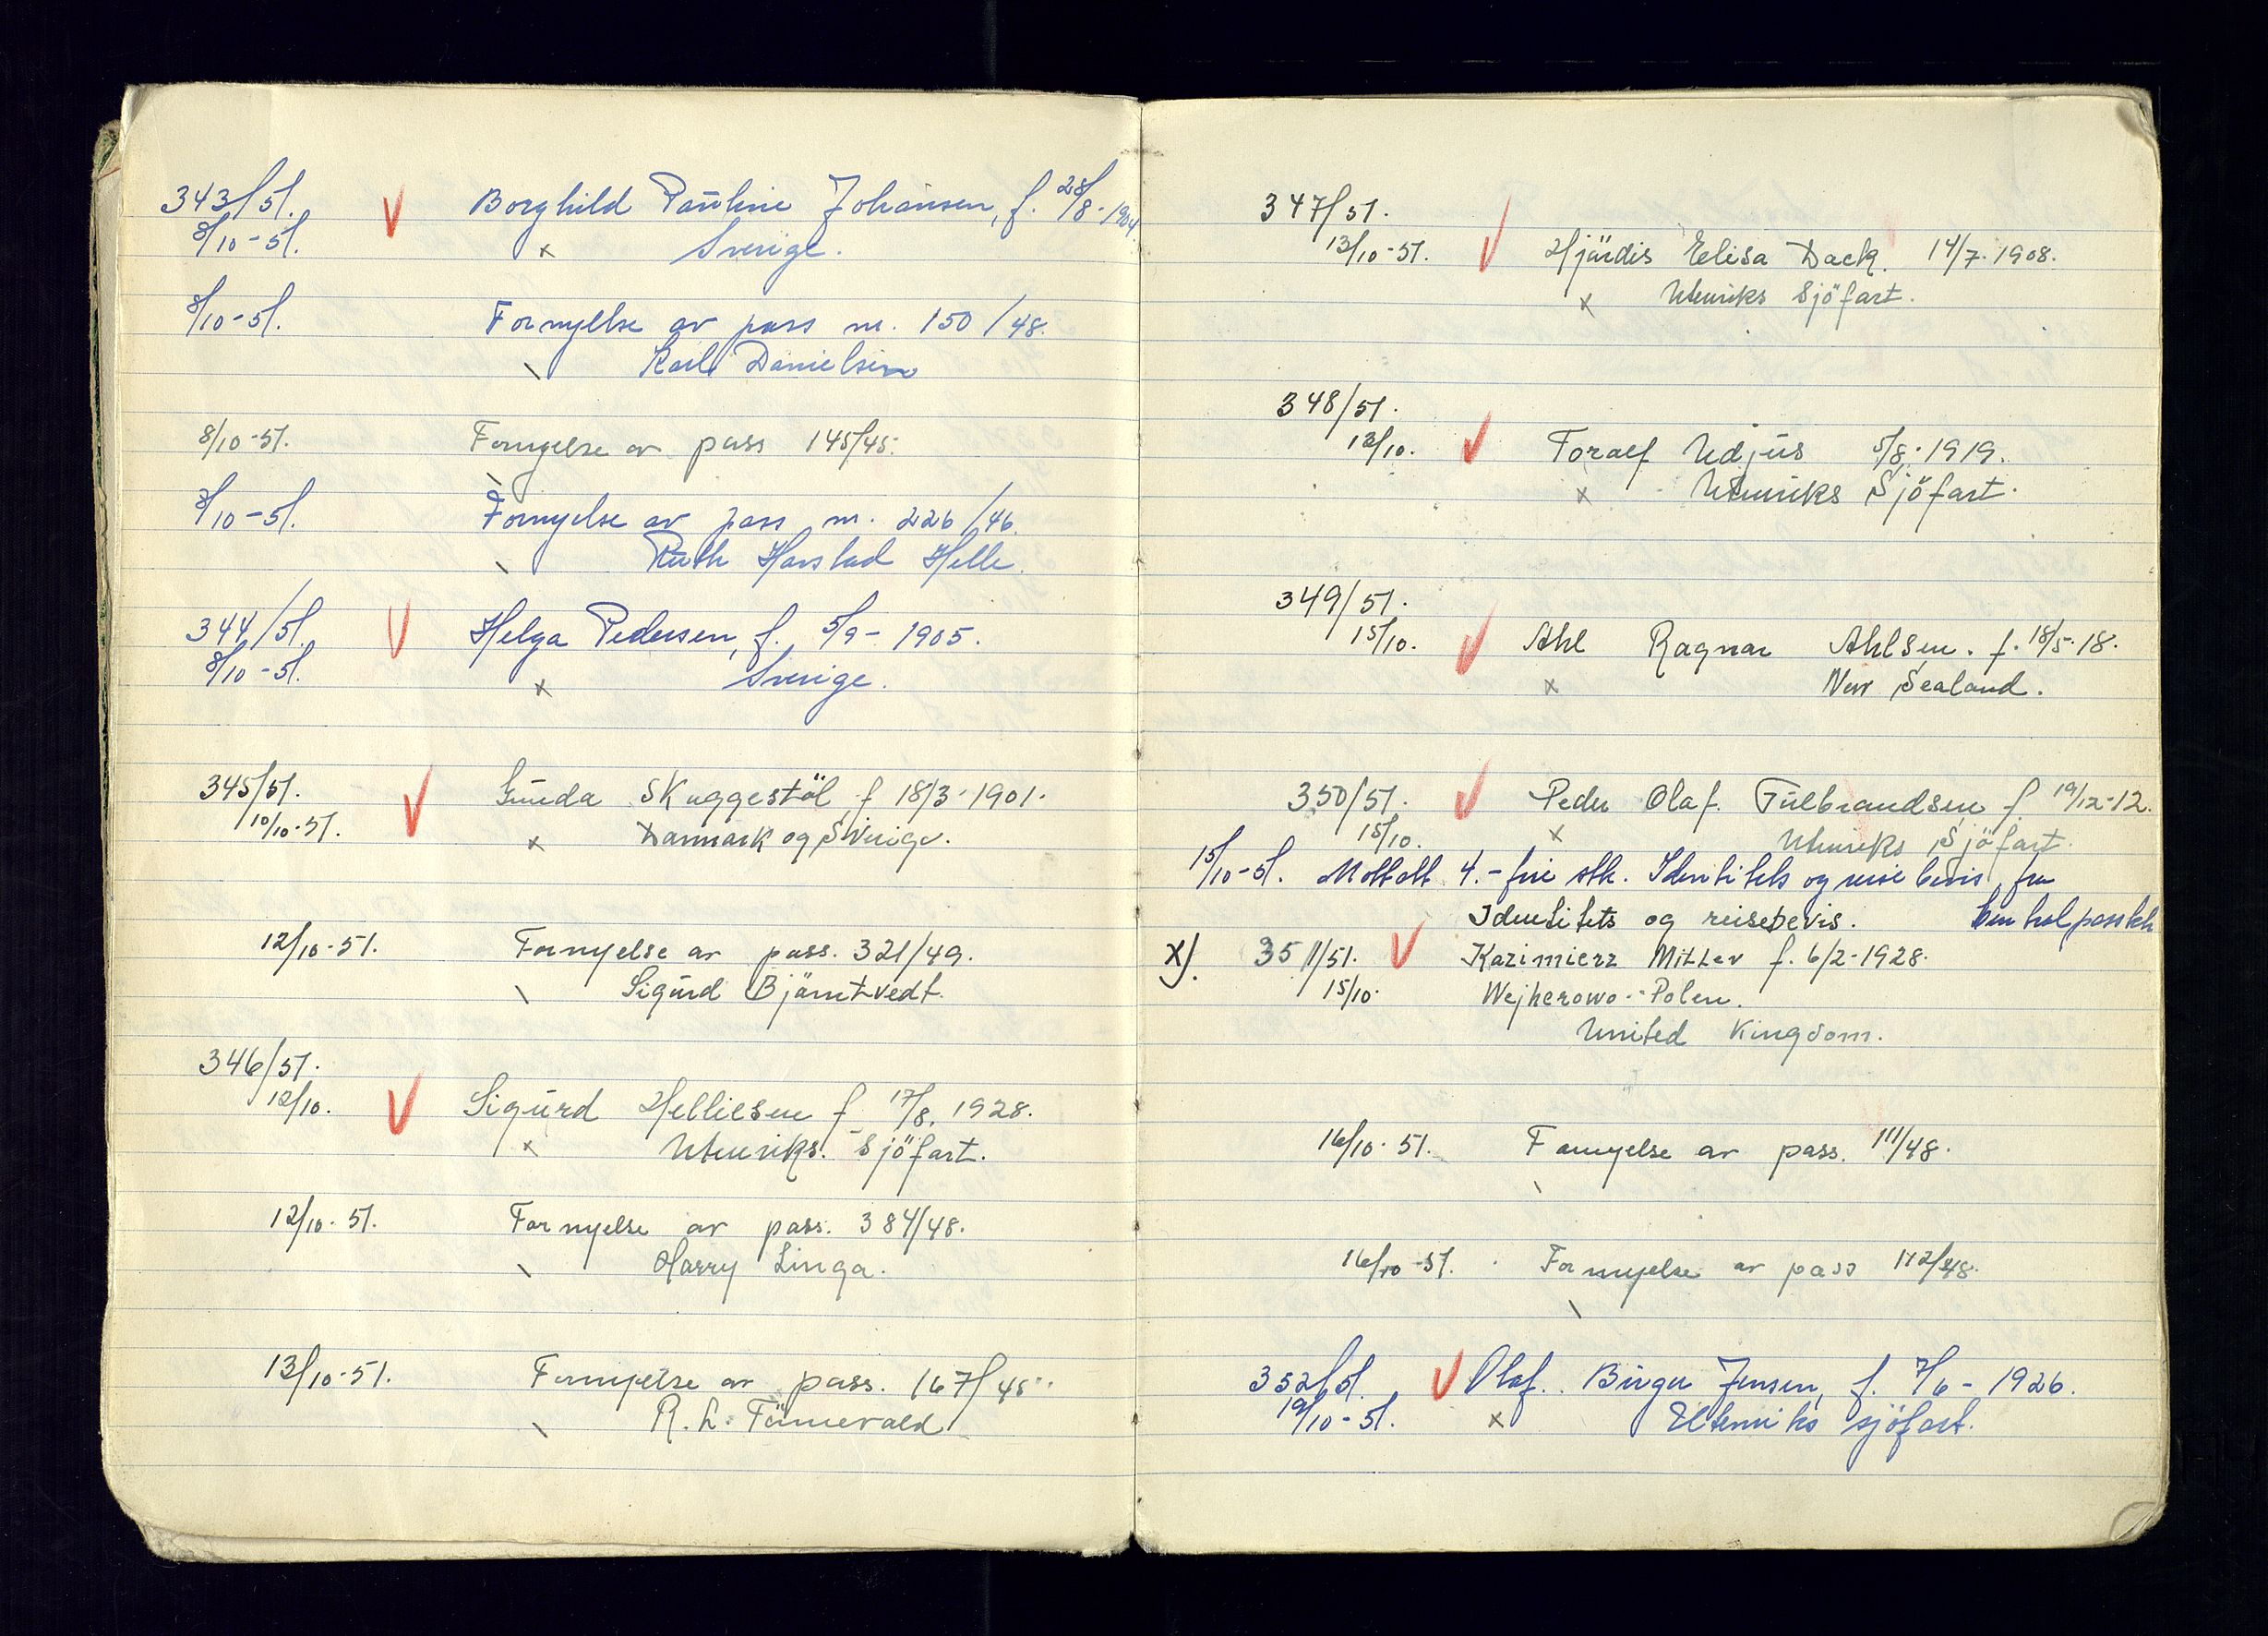 343/51. V Borghild Pauline Johansen, f. 28/8-1904
8/10-51. x Sverige.
8/10-51. Fornyelse av pass nr. 150/48.
\ Karl Danielsen
8/10-51. Fornyelse av pass 145/45.
\
8/10-51. Fornyelse av pass nr. 226/46.
\ Ruth Harstad Helle.
344/51. V Helga Pedersen, f. 5/9-1905.
8/10-51. x Sverige.
345/51. V Gunda Skuggestöl f 18/3-1901.
10/10-51. x Danmark og Sverige.
12/10-51. Fornyelse av pass. 321/49.
\ Sigurd Bjärntvedt.
346/51.
12/10. V Sigurd Helliesen f 17/8. 1928.
x Utenriks. Sjöfart.
12/10-51. Fornyelse av pass. 384/48.
\ Harry Linga.
13/10-51. Fornyelse av pass. 167/45.
\ R. L.
347/51.
13/10-51. V Hjärdis Elisa Dack. 14/7-1908.
x Utenriks Sjöfart.
348/51.
13/10. V Toralf Udjus 5/8-1919.
x Utenriks Sjöfart.
349/51.
15/10. V Ahl Ragnar Ahlsen. f. 18/5-18.
x New Sealand.
350/51. V Peder Olaf. f 19/12-12.
15/10. x Utenriks Sjöfart.
15/10-51. Mottatt 4.- fire stk. Identitets og reise bevis fra
Identitets og reisebevis. Sentralpasskt
X). 351/51. V Kazimierz Mitter f. 6/2-1928.
15/10. Wejherowo - Polen.
United Kingdom.
16/10-51. Fornyelse av pass. 111/48.
\
16/10-51. Fornyelse av pass 112/48.
\
352/51. V Olaf. Birger Jensen, f. 7/6-1926.
19/10-51. x Utenriks sjöfart.